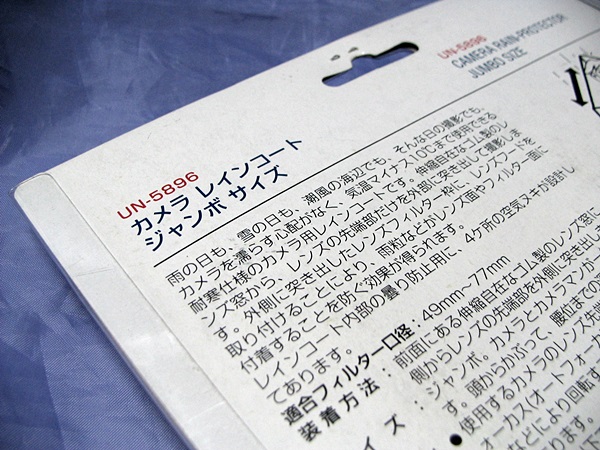 UN-5896
CAMERA RAIN-PROTECTOR
JUMBO SIZE
UN-5896
カメラ レインコート
ジャンボ サイズ
雨の日も、雪の日も、潮風の海辺でも、そんな日の撮影でも、
カメラを濡らす心配がなく、気温マイナス10℃まで使用できる
耐寒仕様のカメラ用レインコートです。伸縮自在なゴム製のレ
ンズ窓から、レンズの先端部だけを外部に突き出して撮影しま
す。外側に突き出したレンズフィルター枠に、レンズフードを
取り付けることにより、雨粒などがレンズ面やフィルター面に
付着することを防ぐ効果が得られます。
レインコート内部の曇り防止用に、4ケ所の空気ヌキが設計し
てあります。
適合フィルター口径：49mm～77mm
装着方法：前面にある伸縮自在なゴム製のレンズ窓に
側からレンズの先端部を外側に突き出し
イズ：ジャンボ。カメラとカメラマンが
す。頭からかぶって、腰位までの
●使用するカメラのレンズ先
オーカス(オートフォーカ
などにより回転す